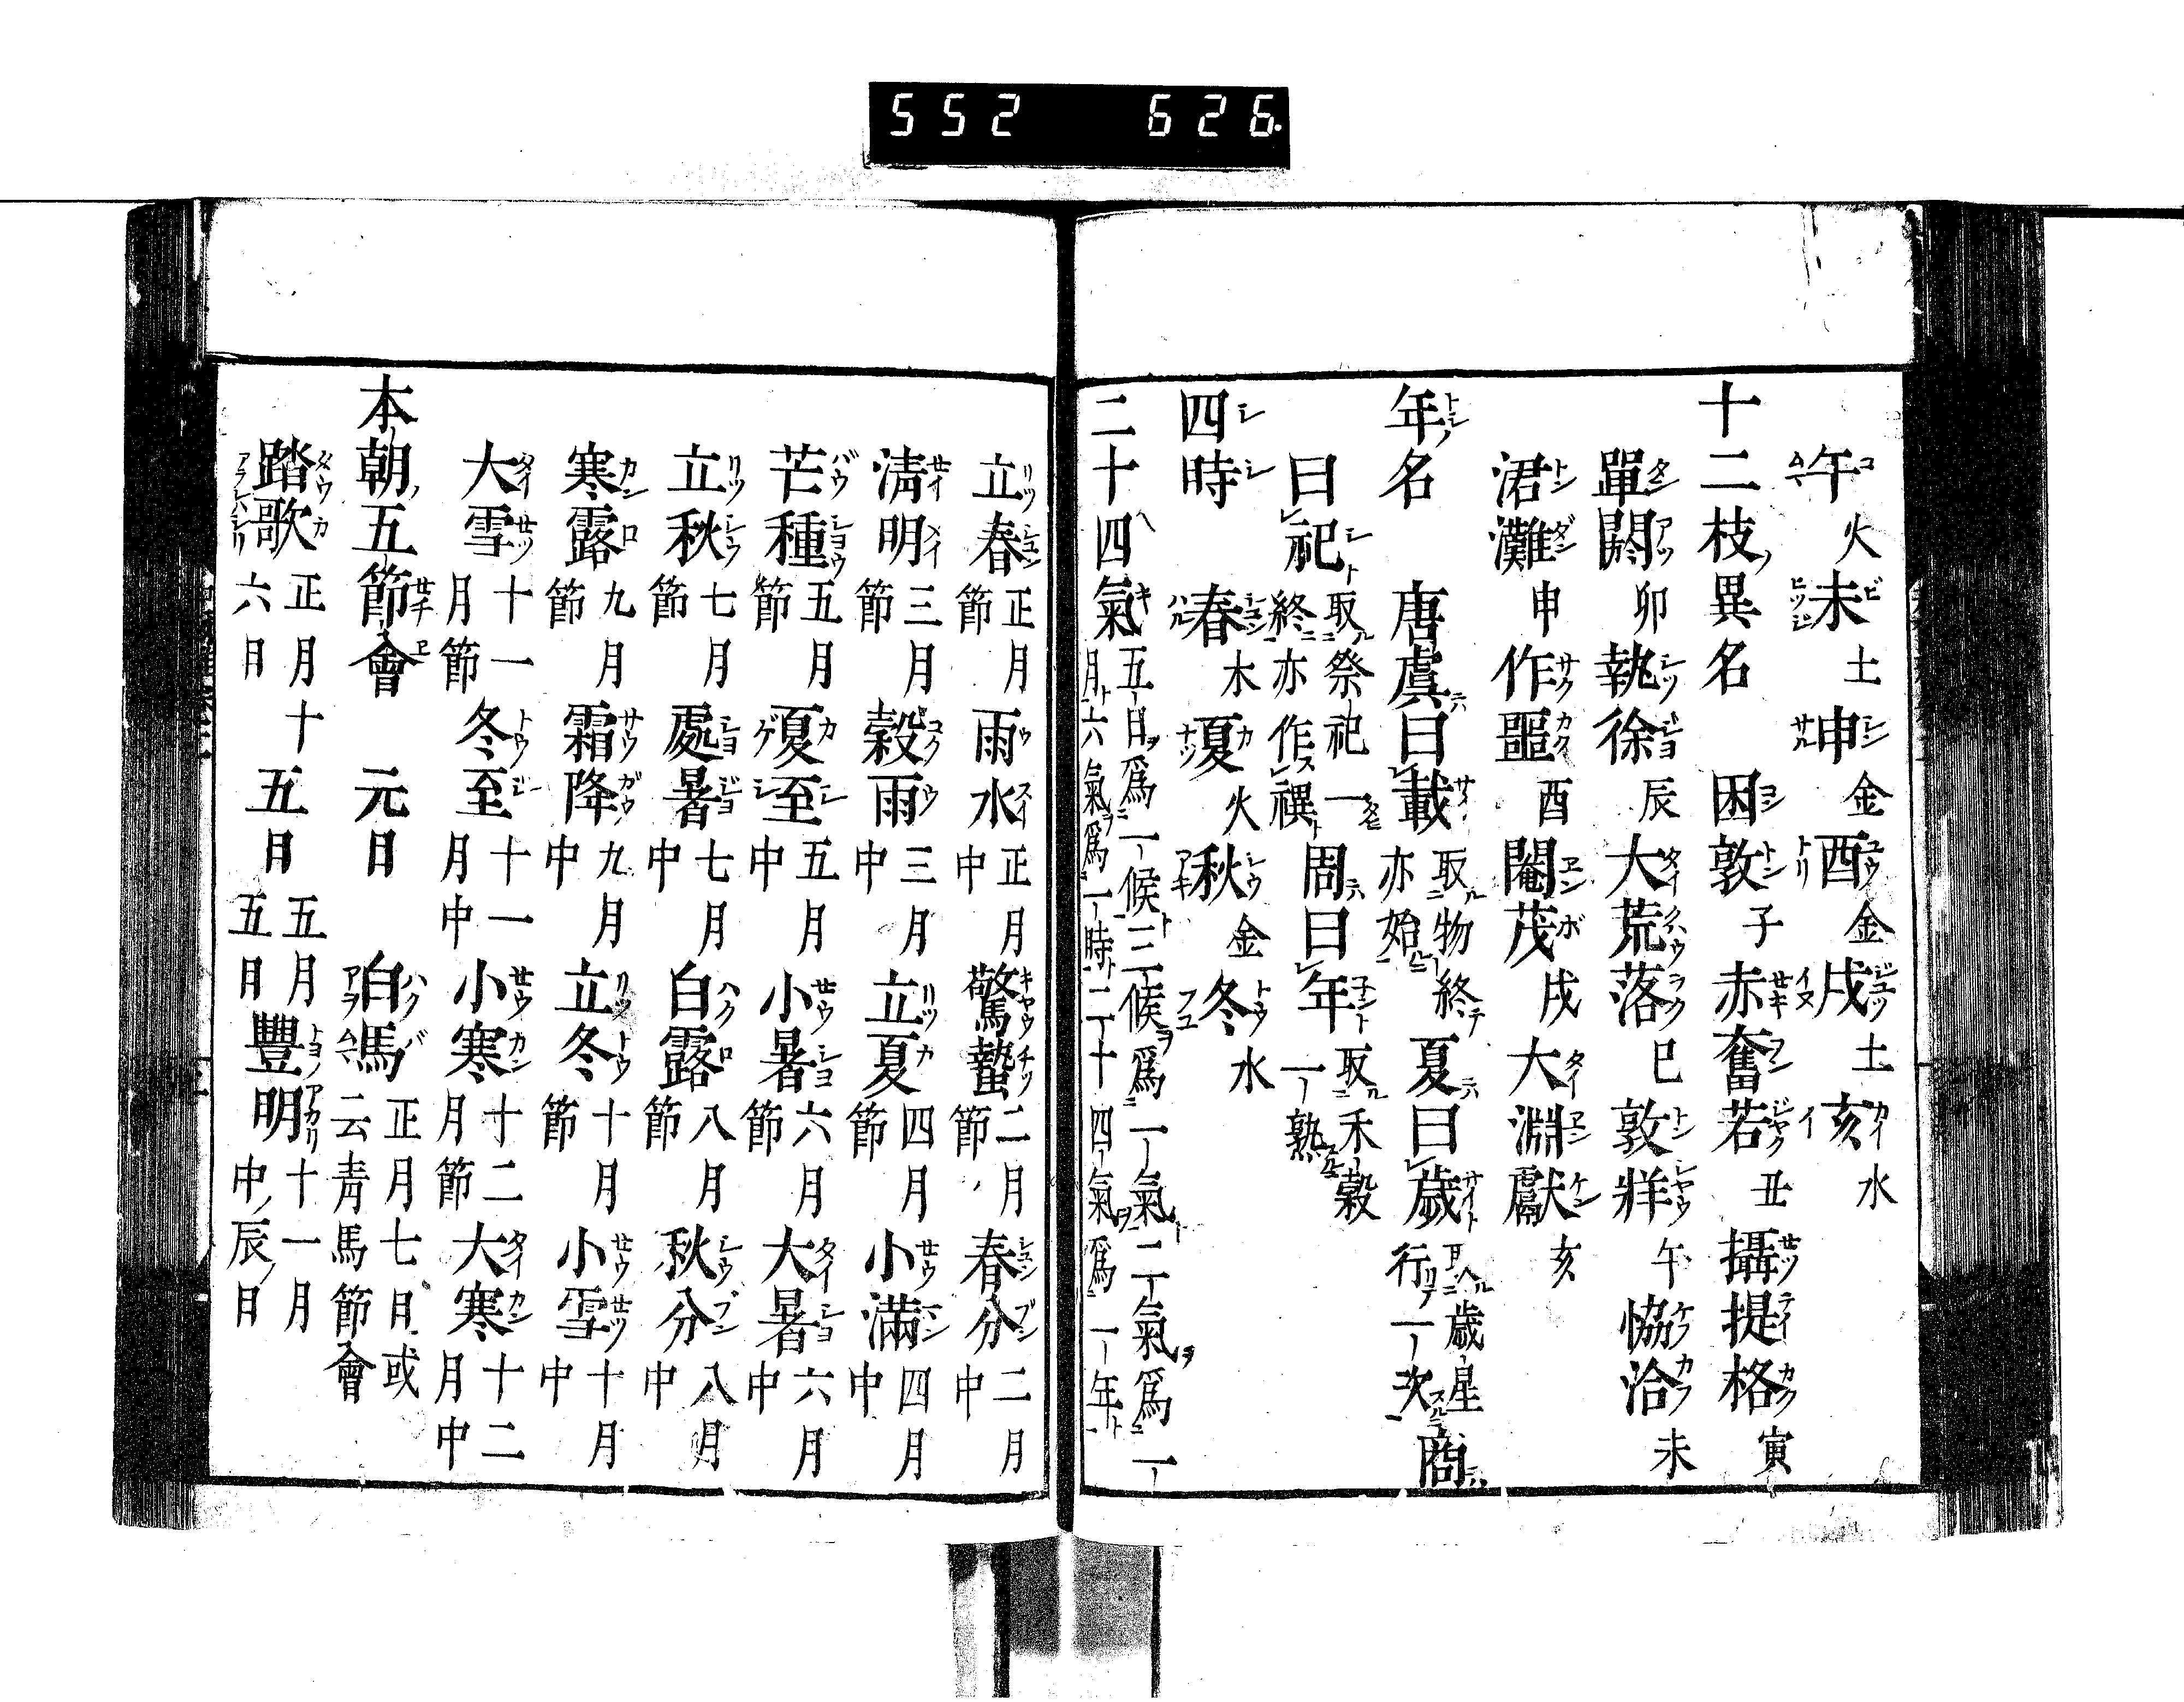 552 626.
午火未土申金酉金戌土亥水
十二枝異名 困敦子赤奮若丑攝提格寅
單閼卯執徐辰大荒落巳敦牂午協洽未
涒灘申作噩酉閹茂戌大淵獻亥
年名 唐虞曰載取物終亦始夏曰歲歲星行一次商
曰祀取祭祀一終亦作禩周曰年取禾穀一熟
四時 春木夏火秋金冬水
二十四氣五日爲一候三候爲一氣二氣爲一月六氣爲一時二十四氣爲一年
立春正月節雨水正月中驚蟄二月節春分二月中
清明三月節穀雨三月中立夏四月節小滿四月中
芒種五月節夏至五月中小暑六月節大暑六月中
立秋七月節處暑七月中白露八月節秋分八月中
寒露九月節霜降九月中立冬十月節小雪十月中
大雪十一月節冬至十一月中小寒十二月節大寒十二月中
本朝五節會 元日 白馬正月七日或云青馬節會
踏歌正月十六日五日五月五日豐明十一月中辰日